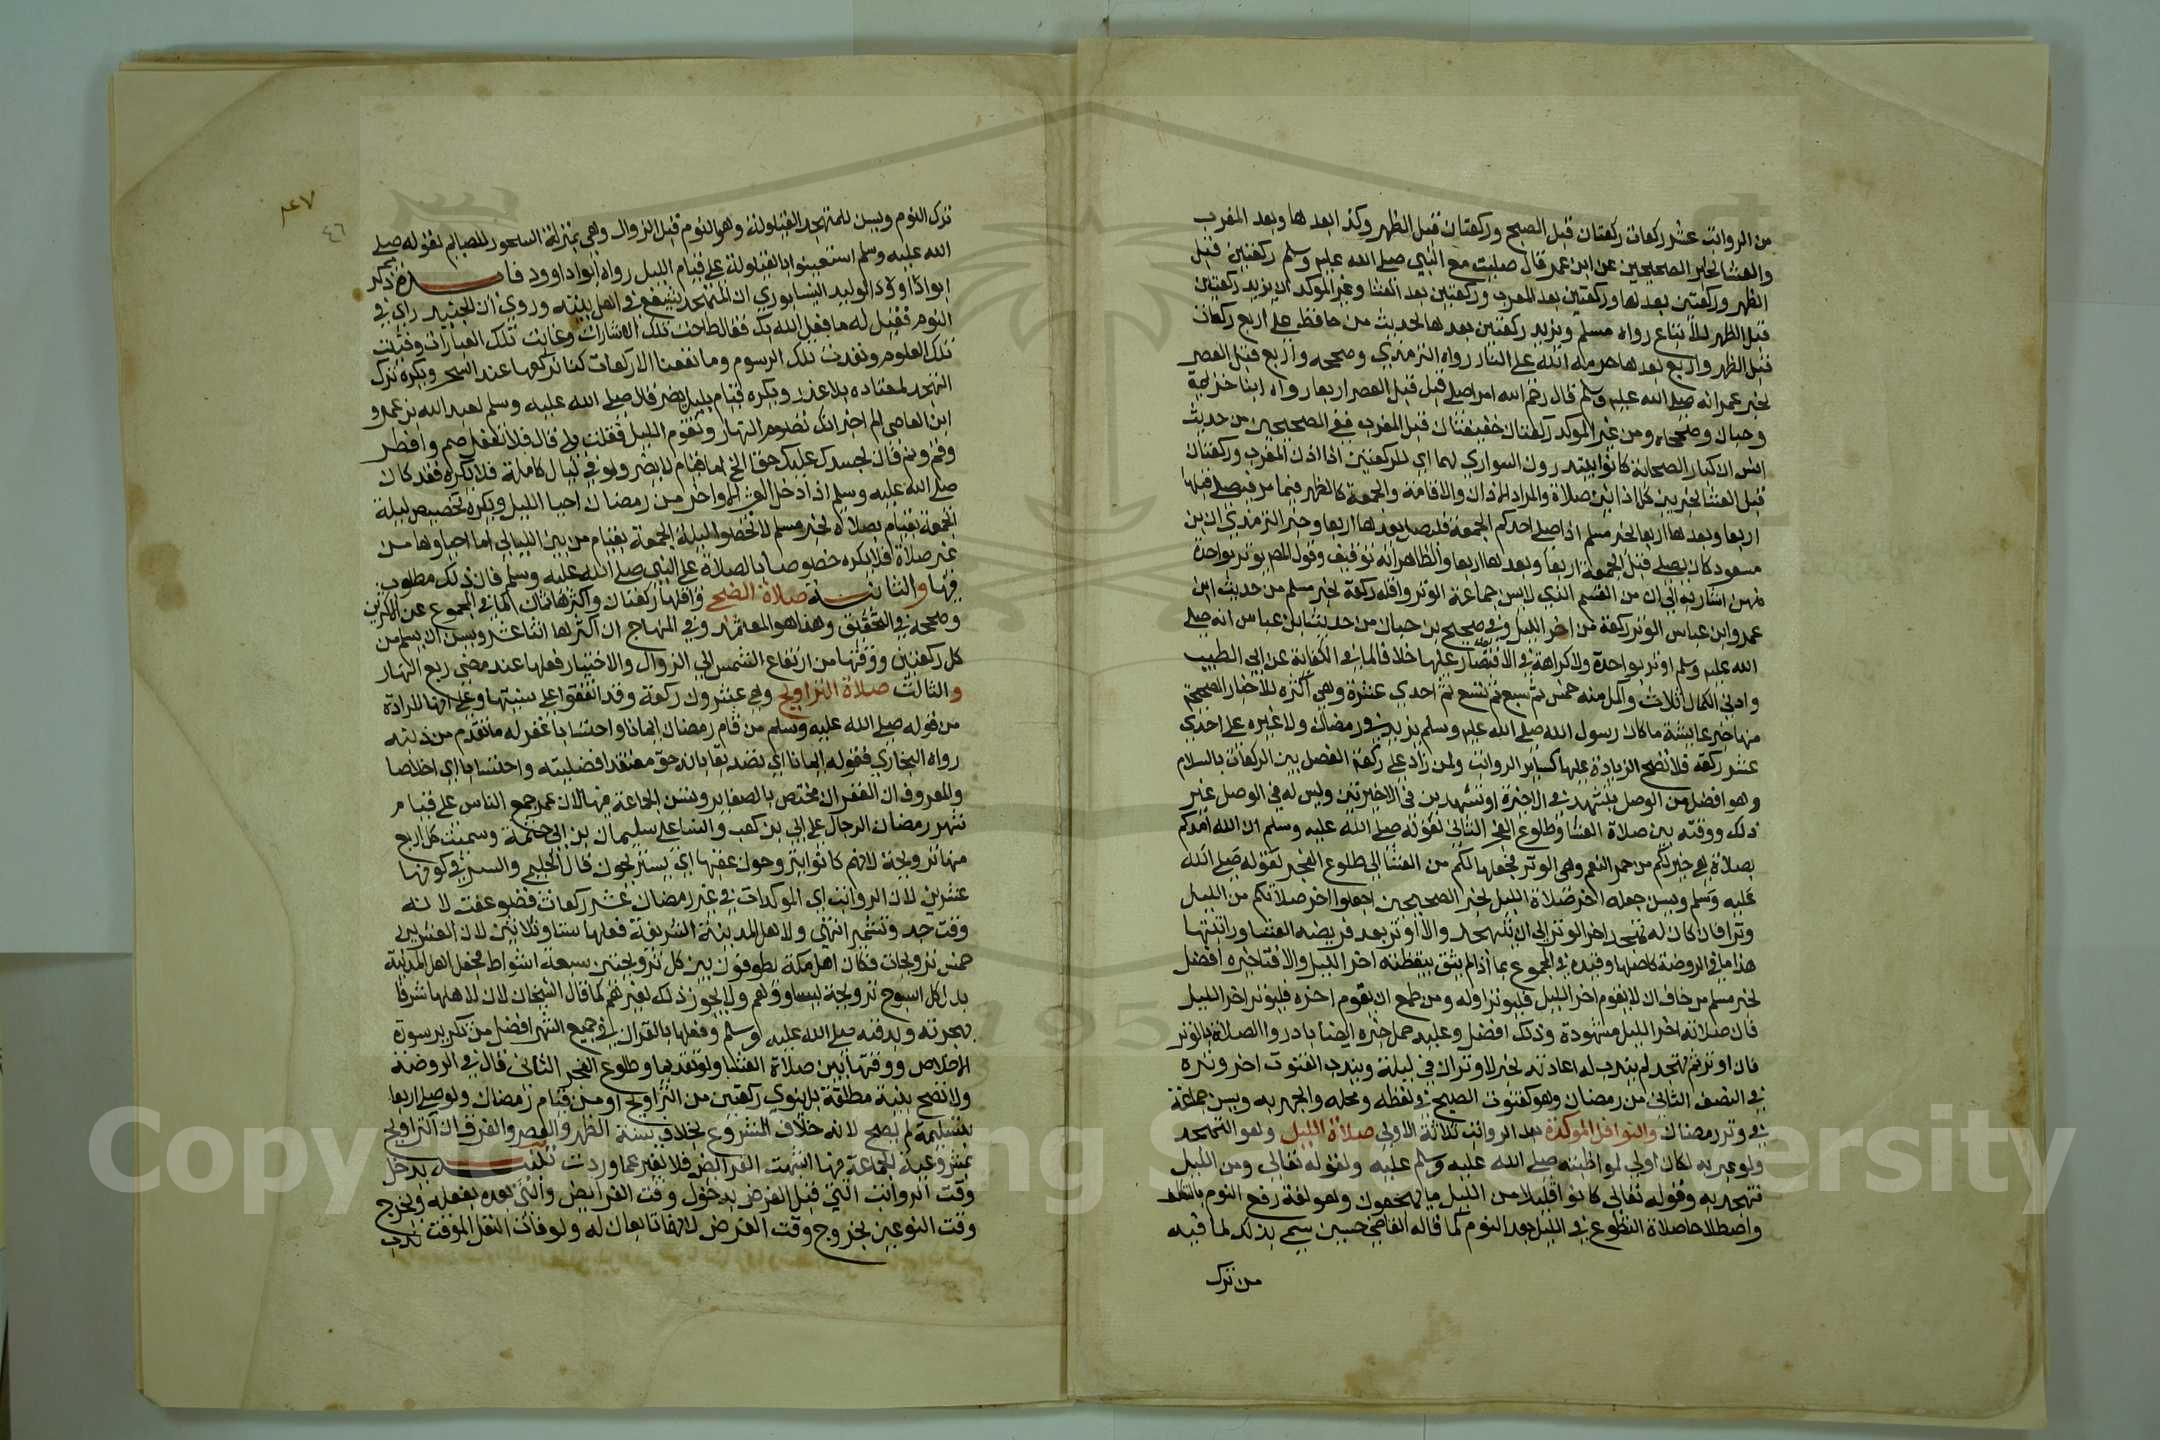 من الرواتب عشر ركعات ركعتان قبل الصبح وركعتان قبل الظهر وكذا بعدها وبعد المغرب
والعشا لخبر الصحيحين عن ابن عمر قال صليت مع النبي صلى الله عليه وسلم ركعتين قبل
الظهر وركعتين بعدها وركعتين بعد المغرب وركعتين بعد العشا وغير الموكد ان يزيد ركعتين
قبل الظهر للاتباع رواه مسلم ويزيد ركعتين بعدها لحديث من حافظ على اربع ركعات
قبل الظهر واربع بعدها حرمه الله على النار رواه الترمذي وصححه واربع قبل العصر
لخبر عمر انه صلى الله عليه وسلم قال رحم الله امرا صلى قبل العصر اربعا رواه ابنا خزيمة
وحبان وصححاه ومن غير الموكد ركعتان خفيفتان قبل المغرب ففي الصحيحين من حديث
انس ان كبار الصحابة كانوا يبتدرون السواري لهما اي للركعتين اذا اذن المغرب وركعتان
قبل العشا لخبر بين كل اذانين صلاة والمراد الاذان والاقامة والجمعة كالظهر فيما مر فيصلي قبلها
اربعا وبعدها اربعا لخبر مسلم اذا صلى احدكم الجمعة فليصل بعدها اربعا وخبر الترمذي ان ابن
مسعود كان يصلي قبل الجمعة اربعا وبعدها اربعا والظاهر انه توقيف وقول المص يوتر بواحدة
منهن اشار به الى ان من القسم الذي لا يسن جماعة الوتر واقله ركعة لخبر مسلم من حديث ابن
عمر وابن عباس الوتر ركعة من اخر الليل وفي صحيح بن حبان من حديث ابن عباس انه صلى
الله عليه وسلم اوتر بواحدة ولا كراهة في الاقتصار عليها خلافا لما في الكفاية عن ابي الطيب
وادنى الكمال ثلاث واكمل منه خمس ثم سبع ثم تسع ثم احدى عشرة وهي اكثره للاخبار الصحيحة
منها خبر عايشة ما كان رسول الله صلى الله عليه وسلم يزيد في رمضان ولا غيره على احدى
عشر ركعة فلا تصح الزيادة عليها كساير الرواتب ولمن زاد على ركعة الفصل بين الركعات بالسلام
وهو افضل من الوصل بتشهد في الاخيرة او تشهدين في الاخيرتين وليس له في الوصل غير
ذلك ووقته بين صلاة العشا وطلوع الفجر الثاني لقوله صلى الله عليه وسلم ان الله امدكم
بصلاة هي خير لكم من حمر النعم وهي الوتر فجعلها لكم من العشا الى طلوع الفجر لقوله صلى الله
عليه وسلم ويسن جعله اخر صلاة الليل لخبر الصحيحين اجعلوا اخر صلاتكم من الليل
وترا فان كان له تهجد اخر الوتر الى ان يتهجد والا اوتر بعد فريضة العشا وراتبتها
هذا ما في الروضة كاصلها وقيده في المجموع بما اذا لم يثق بيقظته اخر الليل والا فتاخيره افضل
لخبر مسلم من خاف ان لا يقوم اخر الليل فليوتر اوله ومن طمع ان يقوم اخره فليوتر اخر الليل
فان صلاته اخر الليل مشهودة وذلك افضل وعليه حمل خبره ايضا بادروا الصلاة بالوتر
فان اوتر ثم تهجد لم يندب له اعادته لخبر لا وتران في ليلة ويندب القنوت اخر وتره
في النصف الثاني من رمضان وهو كقنوت الصبح في لفظه ومحله والجهر به ويسن جماعة
في وتر رمضان والنوافل الموكدة بعد الرواتب ثلاثة الاولى صلاة الليل وهو التهجد
ولو عبر به لكان اولى لمواظبته صلى الله عليه وسلم عليه ولقوله تعالى ومن الليل
فتهجد به وقوله تعالى كانوا قليلا من الليل ما يهجعون وهو لغة رفع النوم بالتكلف
واصطلاحا صلاة التطوع في الليل بعد النوم كما قاله القاضي حسين سمي بذلك لما فيه
من ترك
٤٦
ترك النوم ويسن للمتهجد القيلولة وهو النوم قبل الزوال وهي بمنزلة السحور للصايم لقوله صلى
الله عليه وسلم استعينوا بالقيلولة على قيام الليل رواه ابو داوود فايدة ذكر
ابو الوليد النيسابوري ان المتهجد يشفع في اهل بيته وروي ان الجنيد راي في
النوم فقيل له ما فعل الله بك فقال طاحت تلك الاشارات وغابت تلك العبارات وفنيت
تلك العلوم ونفدت تلك الرسوم وما نفعنا الا ركعات كنا نركعها عند السحر ويكره ترك
التهجد لمعتاده بلا عذر ويكره قيام بليل يضر قال صلى الله عليه وسلم لعبد الله بن عمرو
ابن العاصي الم اخبر انك تصوم النهار وتقوم الليل فقلت بلى قال فلا تفعل صم وافطر
وقم ونم فان لجسدك عليك حقا الخ اما قيام لا يضر ولو في ليال كاملة فلا يكره فقد كان
صلى الله عليه وسلم اذا دخل العشر الاواخر من رمضان احيا الليل ويكره تخصيص ليلة
الجمعة بقيام بصلاة لخبر مسلم لا تخصوا ليلة الجمعة بقيام من بين الليالي اما احياوها من
غير صلاة فلا يكره خصوصا بالصلاة على النبي صلى الله عليه وسلم فان ذلك مطلوب
فيها والثانية صلاة الضحى واقلها ركعتان واكثرها ثمان كما في المجموع عن الاكثرين
وصححه في التحقيق وهذا هو المعتمد وفي المنهاج ان اكثرها اثنا عشر ويسن ان يسلم من
كل ركعتين ووقتها من ارتفاع الشمس الى الزوال والاختيار فعلها عند مضي ربع النهار
والثالث صلاة التراويح وهي عشرون ركعة وقد اتفقوا على سنيتها وعلى انها المرادة
من قوله صلى الله عليه وسلم من قام رمضان ايمانا واحتسابا غفر له ما تقدم من ذنبه
رواه البخاري فقوله ايمانا اي تصديقا بانه حق معتقدا فضيلته واحتسابا اي اخلاصا
والمعروف ان الغفران مختص بالصغاير وتسن الجماعة فيها لان عمر جمع الناس على قيام
شهر رمضان الرجال على ابي بن كعب والنسا على سليمان بن ابي حثمة وسميت كل اربع
منها ترويحة لانهم كانوا يتروحون عقبها اي يستريحون قال الحليمي والسر في كونها
عشرين لان الرواتب اي الموكدات في غير رمضان عشر ركعات فضوعفت لانه
وقت جد وتشمير انتهى ولاهل المدينة الشريفة فعلها ستا وثلاثين لان العشرين
خمس ترويحات فكان اهل مكة يطوفون بين كل ترويحتين سبعة اشواط فجعل اهل المدينة
بدل كل اسبوع ترويحة ليساووهم ولا يجوز ذلك لغيرهم كما قال الشيخان لان لاهلها شرفا
بهجرته وبدفنه صلى الله عليه وسلم وفعلها بالقران في جميع الشهر افضل من تكرير سورة
الاخلاص ووقتها بين صلاة العشا ولو تقديما وطلوع الفجر الثاني قال في الروضة
ولا تصح بنية مطلقة بل ينوي ركعتين من التراويح او من قيام رمضان ولو صلى اربعا
بتسليمة لم يصح لانه خلاف المشروع بخلاف سنة الظهر والعصر والفرق ان التراويح
بمشروعية الجماعة فيها اشبهت الفرائض فلا تغير عما وردت تنبيه يدخل
وقت الرواتب التي قبل الفرض بدخول وقت الفرايض والتي بعده بفعله ويخرج
وقت النوعين بخروج وقت الفرض لانهما تابعان له ولو فات النفل الموقت ندب
Copyright © King Saud University
195